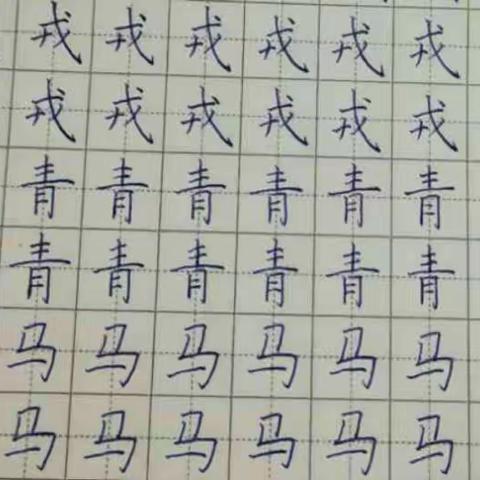 戎戎戎戎戎戎
戎戎戎戎戎戎
青青青青青青
青青青青青青
马马马马马马
马马马马马马